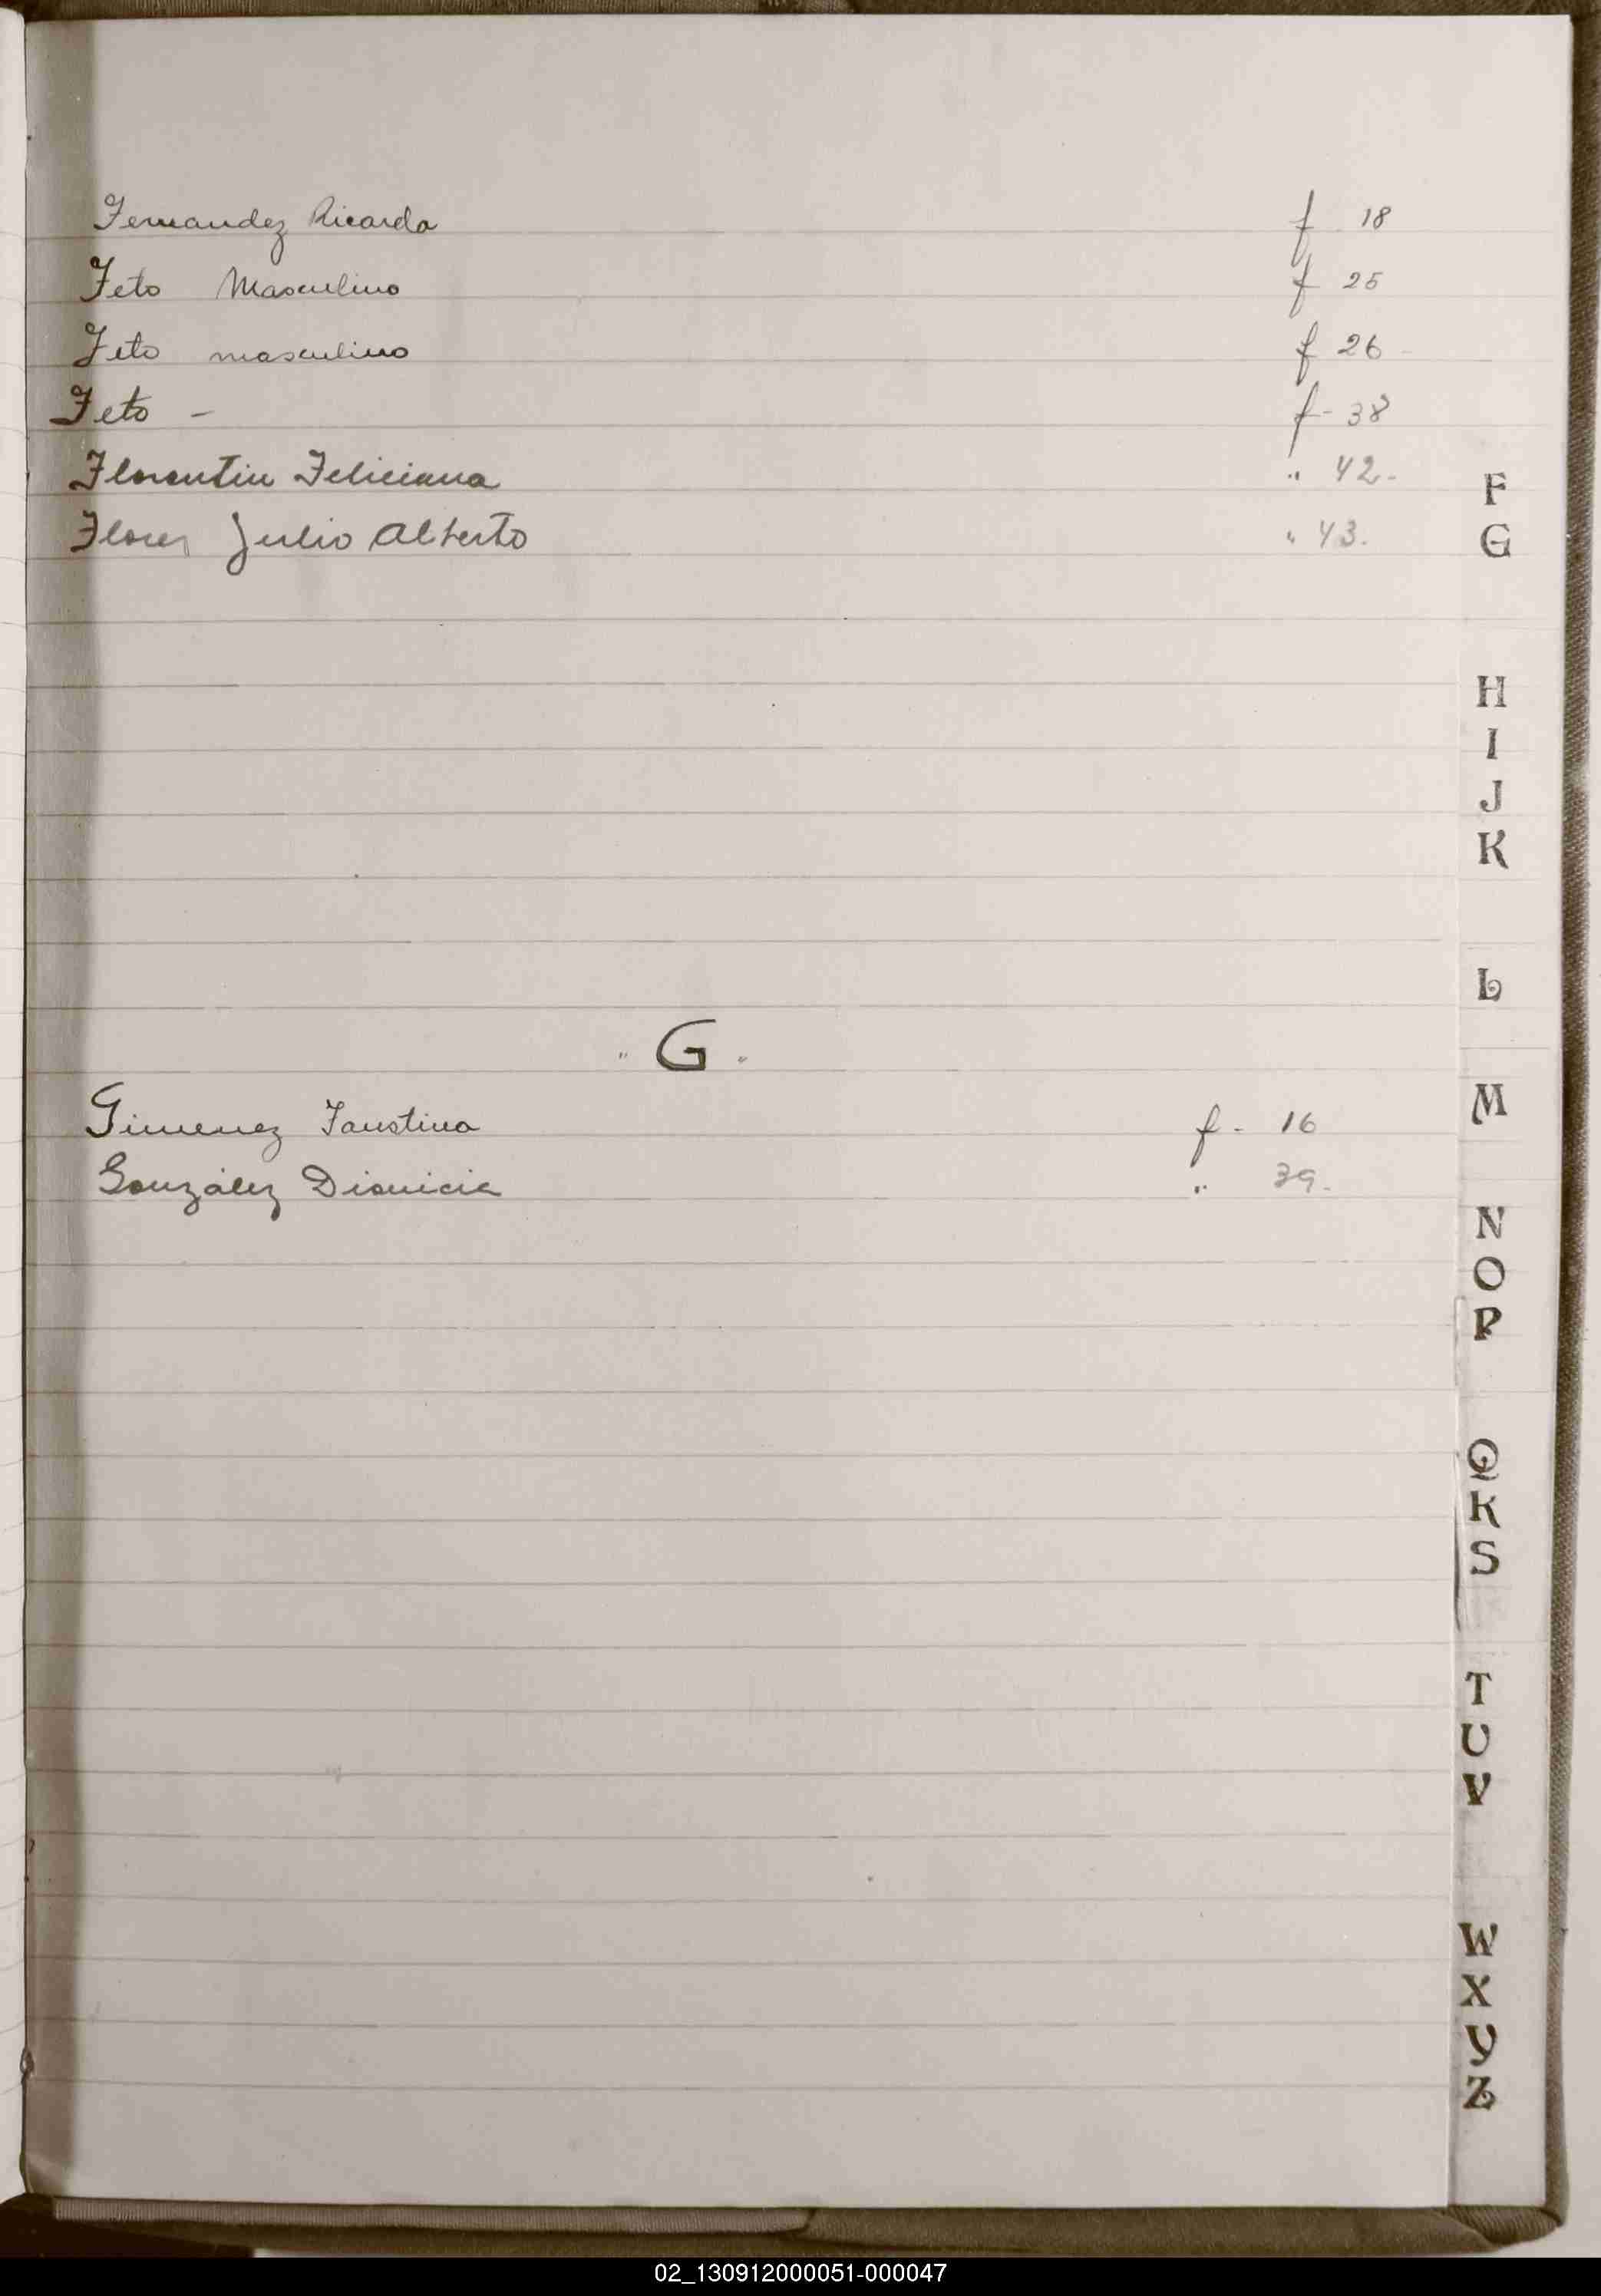 Fernandez Ricarda f 18
Feto Masculino f 25
Feto masculino f 26
Feto - f - 38
Florentin Feliciana " 42.-
Flores Julio Alberto " 43.
F
G
H
I
J
K
L
" G "
M
Gimenez Faustina f - 16
González Dionicia " 39.
N
O
P
Q
R
S
T
U
V
W
X
Y
Z
02_130912000051-000047